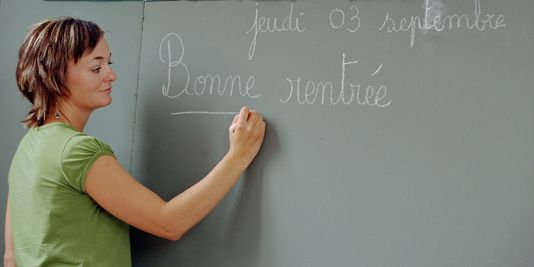 jeudi 03 septembre
Bonne rentrée